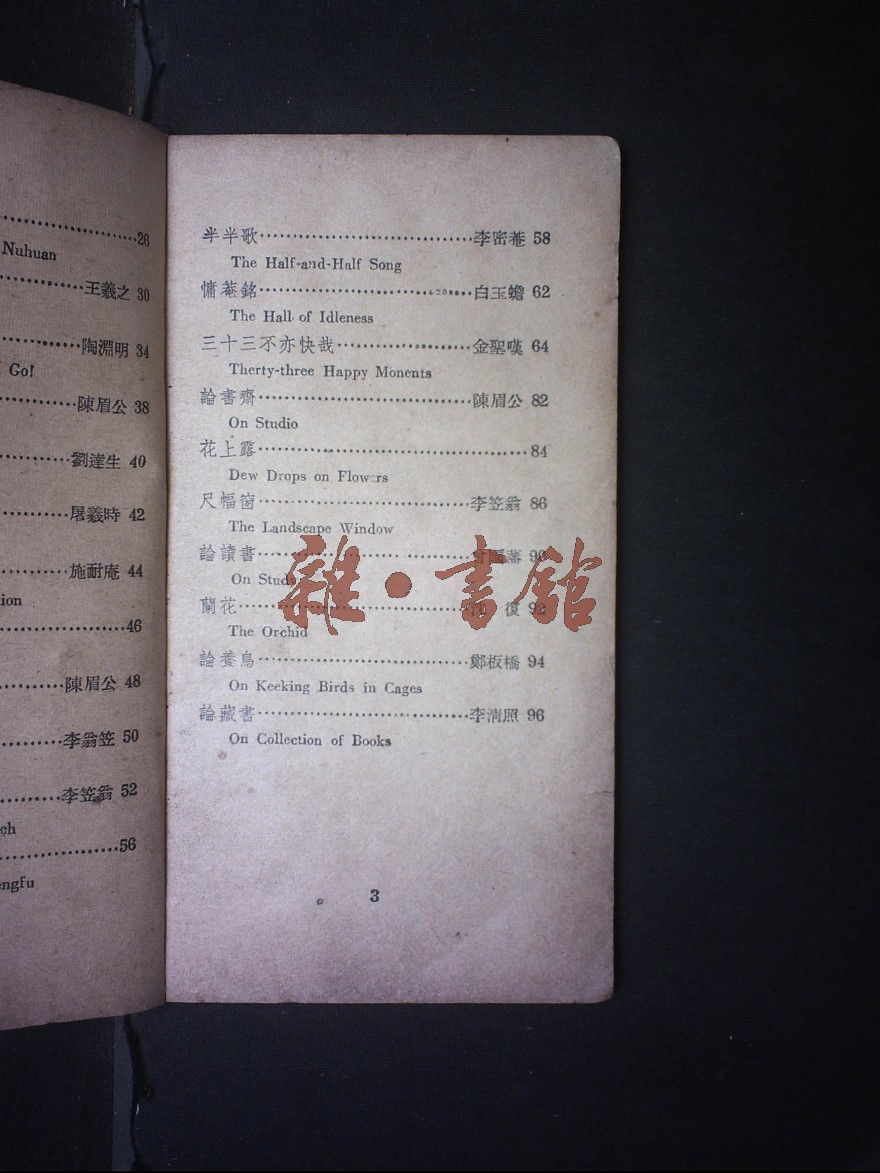 26
Nuhuan
王羲之 30
陶淵明 34
Go!
陳眉公 38
劉達生 40
屠羲時 42
施耐庵 44
ion
46
陳眉公 48
李翁笠 50
李笠翁 52
ch
56
engfu
半半歌 李密菴 58
The Half-and-Half Song
慵菴銘 白玉蟾 62
The Hall of Idleness
三十三不亦快哉 金聖嘆 64
Therty-three Happy Monents
論書齋 陳眉公 82
On Studio
花上露 84
Dew Drops on Flowers
尺幅窗 李笠翁 86
The Landscape Window
論讀書 曾國藩 90
On Study
蘭花 復 92
The Orchid
論養鳥 鄭板橋 94
On Keeking Birds in Cages
論藏書 李清照 96
On Collection of Books
3
雜·書館